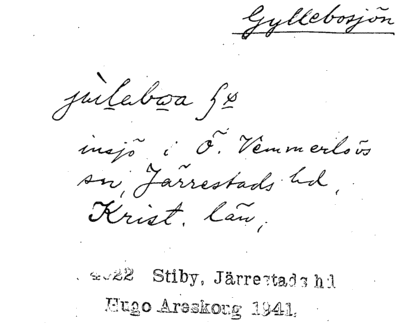 Gyllebosjön
insjö i Ö. Vemmerlövs
sn, Järrestads hd,
Krist. län;
4022 Stiby, Järrestads hd
Hugo Areskoug 1941.